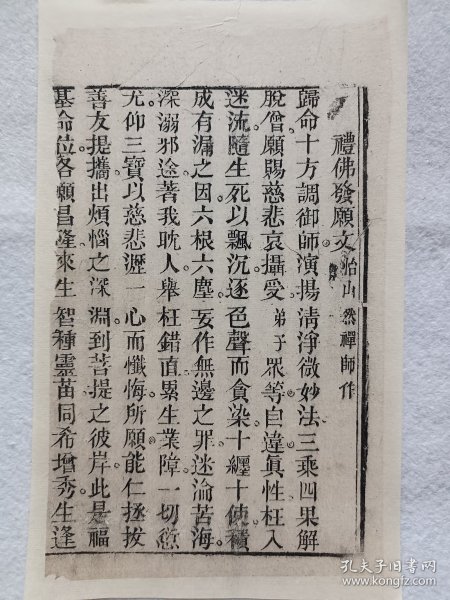 禮佛發願文 怡山然禪師作
歸命十方調御師演揚清淨微妙法三乘四果解
脫僧願賜慈悲哀攝受弟子眾等自違眞性枉入
迷流隨生死以飄沉逐色聲而貪染十纏十使積
成有漏之因六根六塵妄作無邊之罪迷淪苦海
深溺邪途著我耽人舉枉錯直累生業障一切愆
尤仰三寶以慈悲瀝一心而懺悔所願能仁拯拔
善友提攜出煩惱之深淵到菩提之彼岸此是福
基命位各願昌隆來生智種靈苗同希增秀生逢
孔夫子旧书网
www.kongfz.com